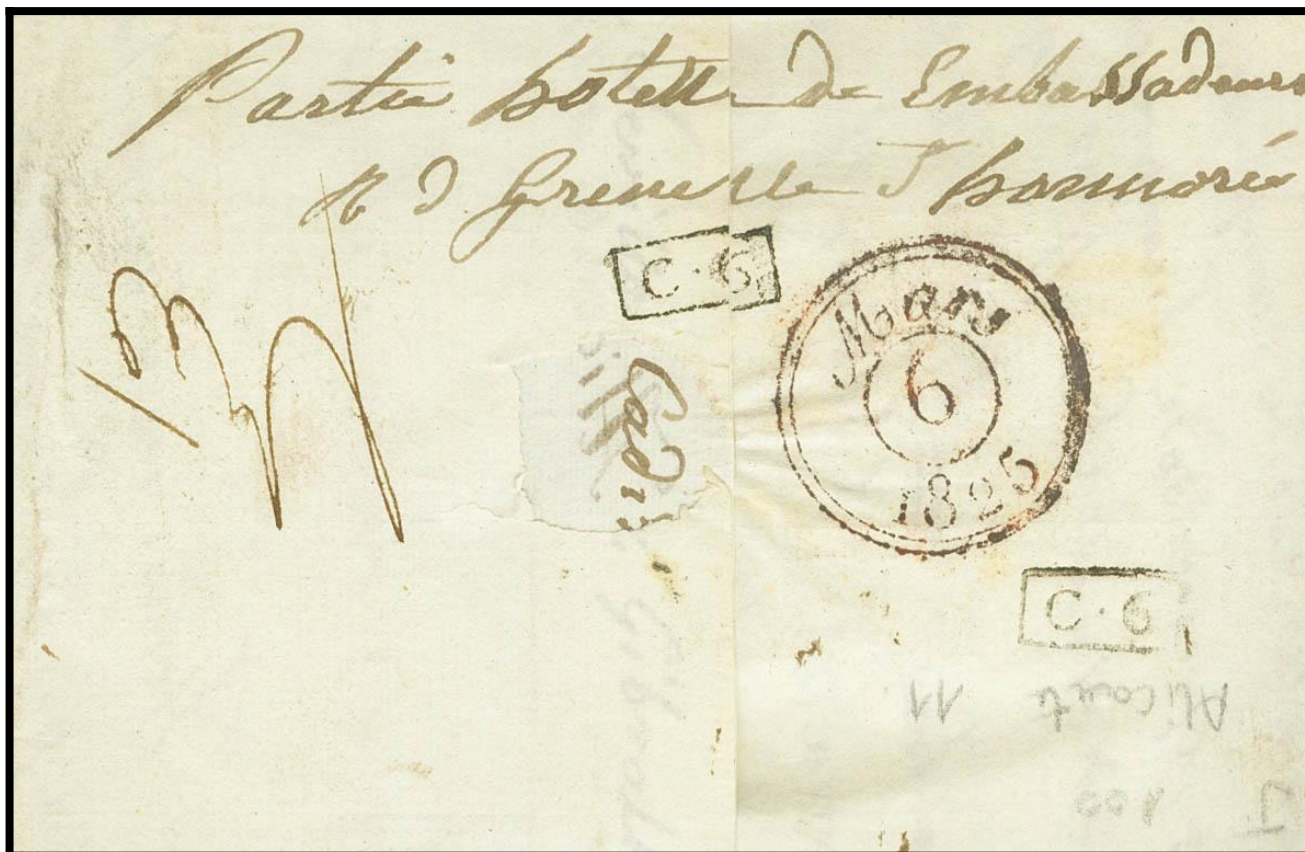 Partie hotell de Embassadeurs
R d Grenelle S honnoré
C·6
Mars
6
1825
Cadi
C·6
Alicante 11.
100